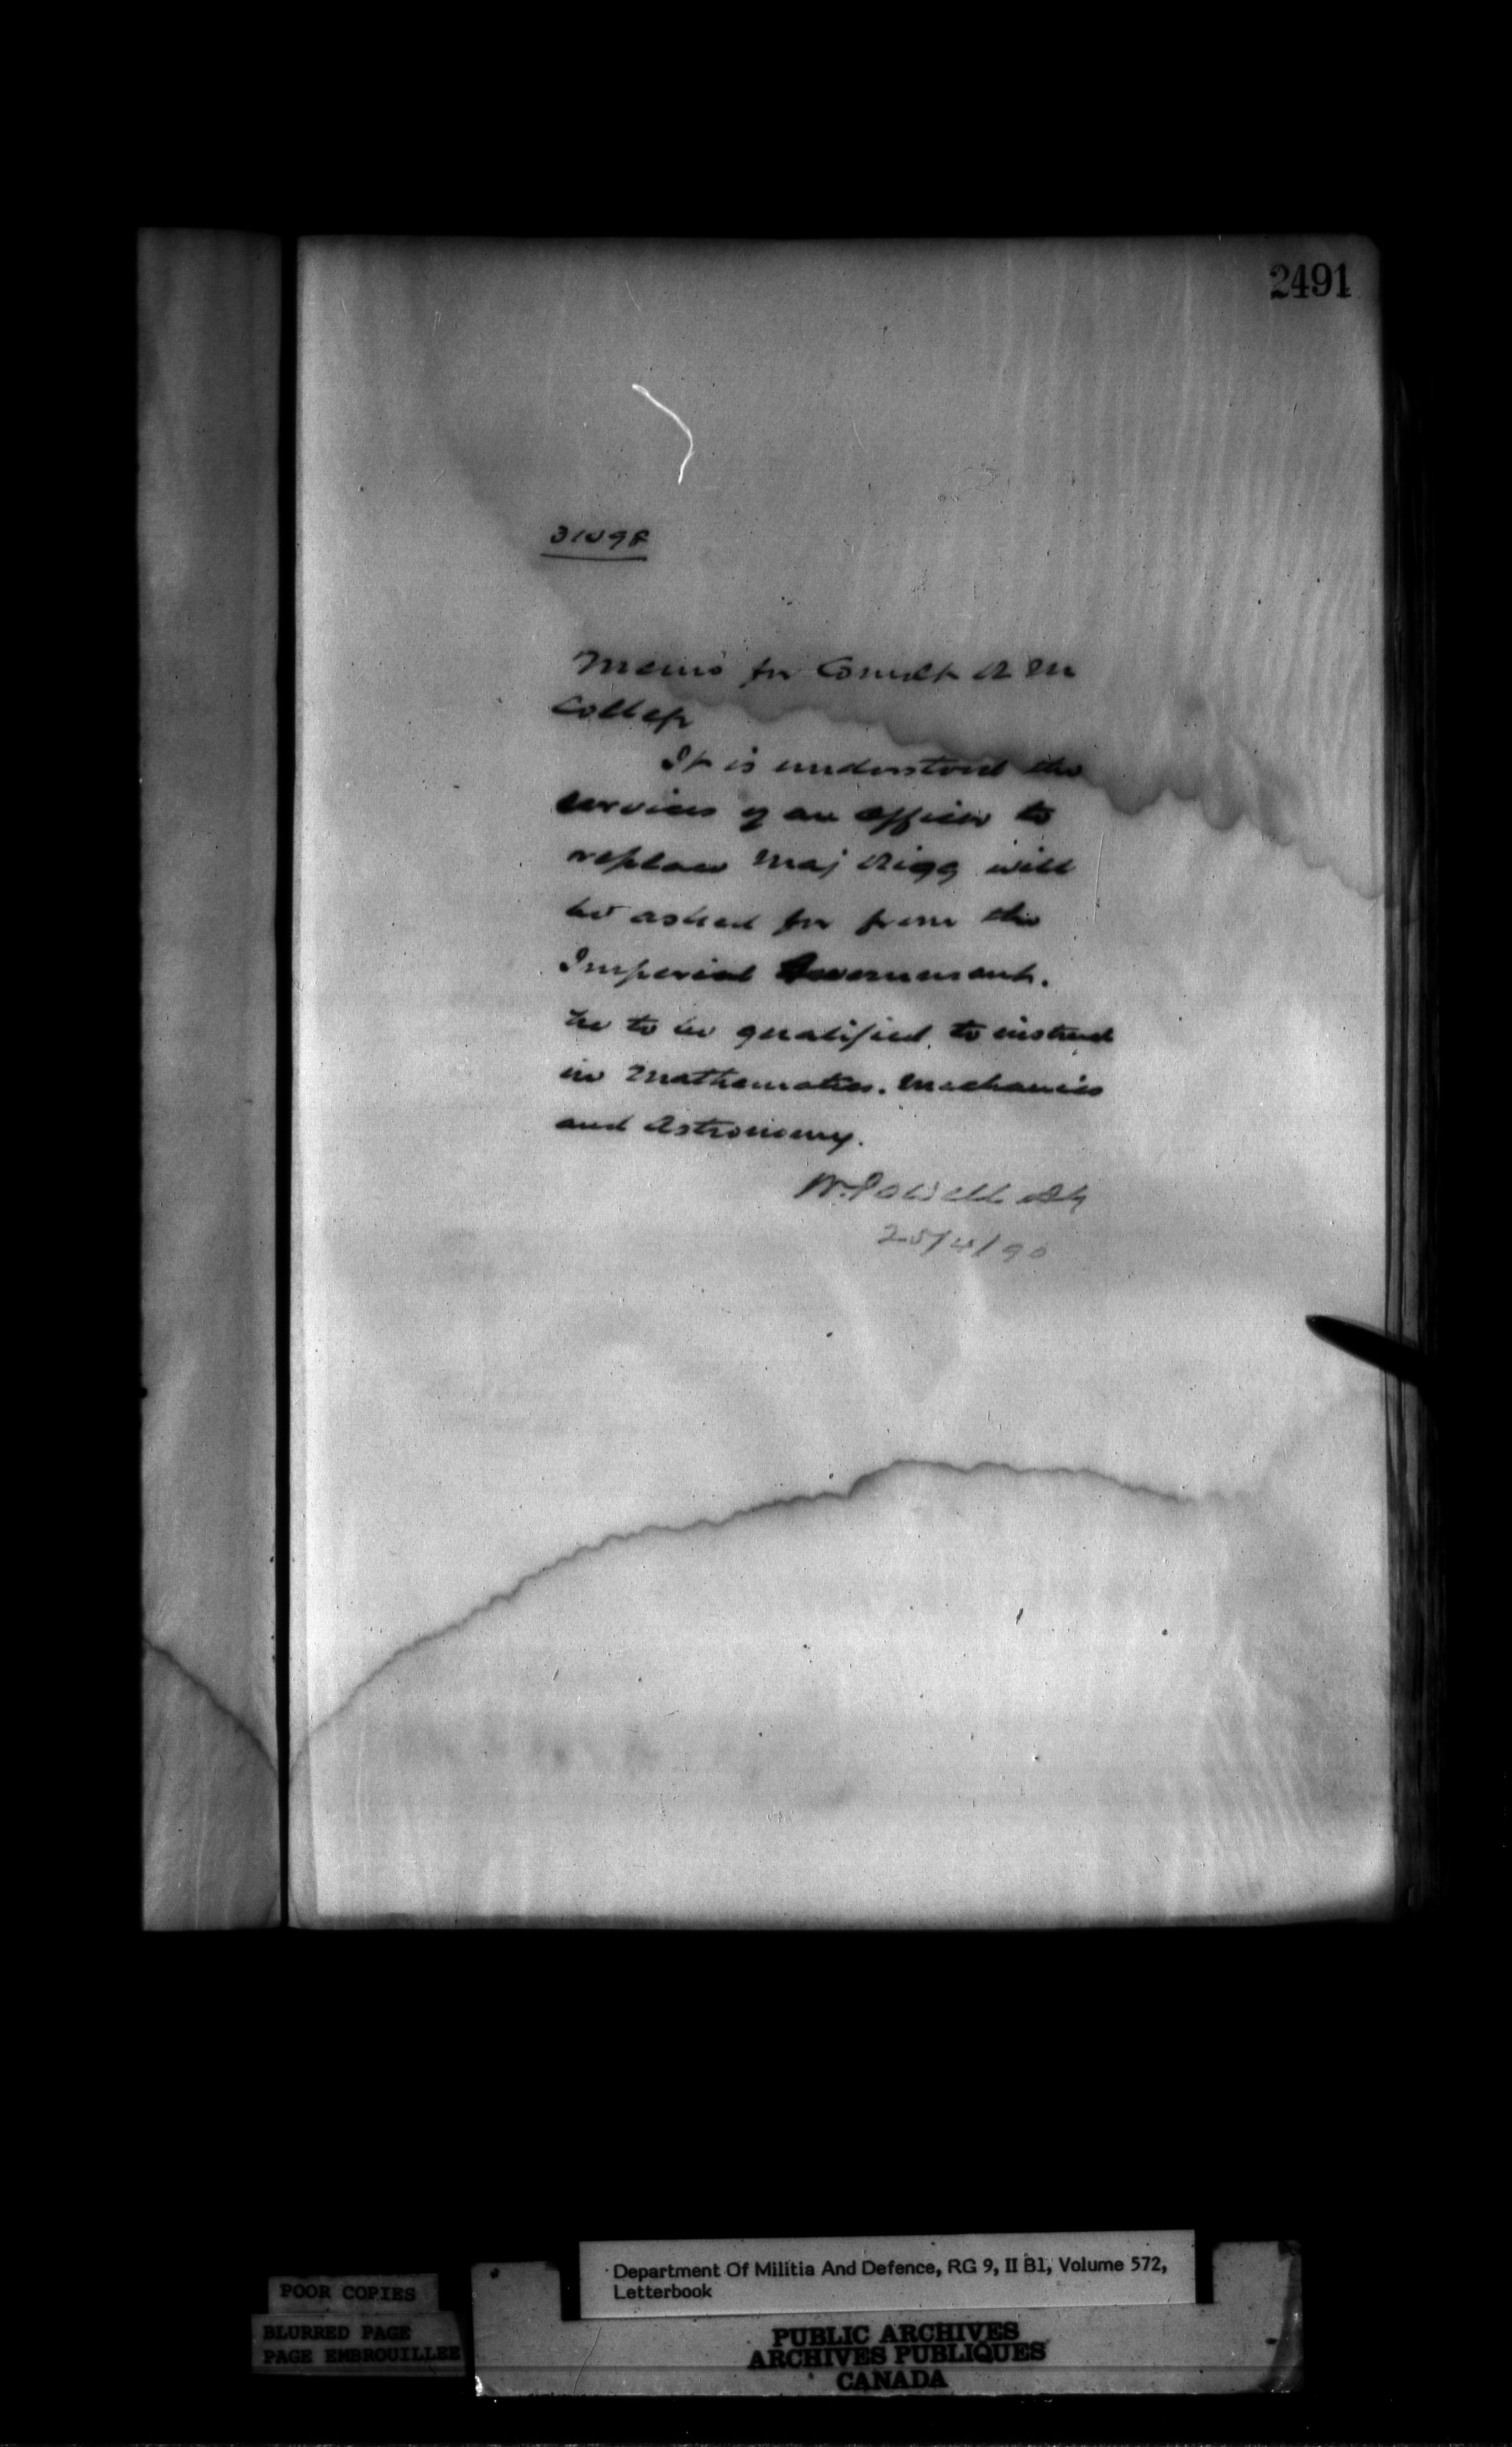 2491
Memo for Comdt R M
College
It is understood the
services of an Officer to
replace Maj Rigg will
be asked for from the
Imperial Government.
He to be qualified to instruct
in Mathematics. Mechanics
and Astronomy.
W. Powell AG
25/4/90
Department Of Militia And Defence, RG 9, II B1, Volume 572,
Letterbook
POOR COPIES
BLURRED PAGE
PAGE EMBROUILLEE
PUBLIC ARCHIVES
ARCHIVES PUBLIQUES
CANADA